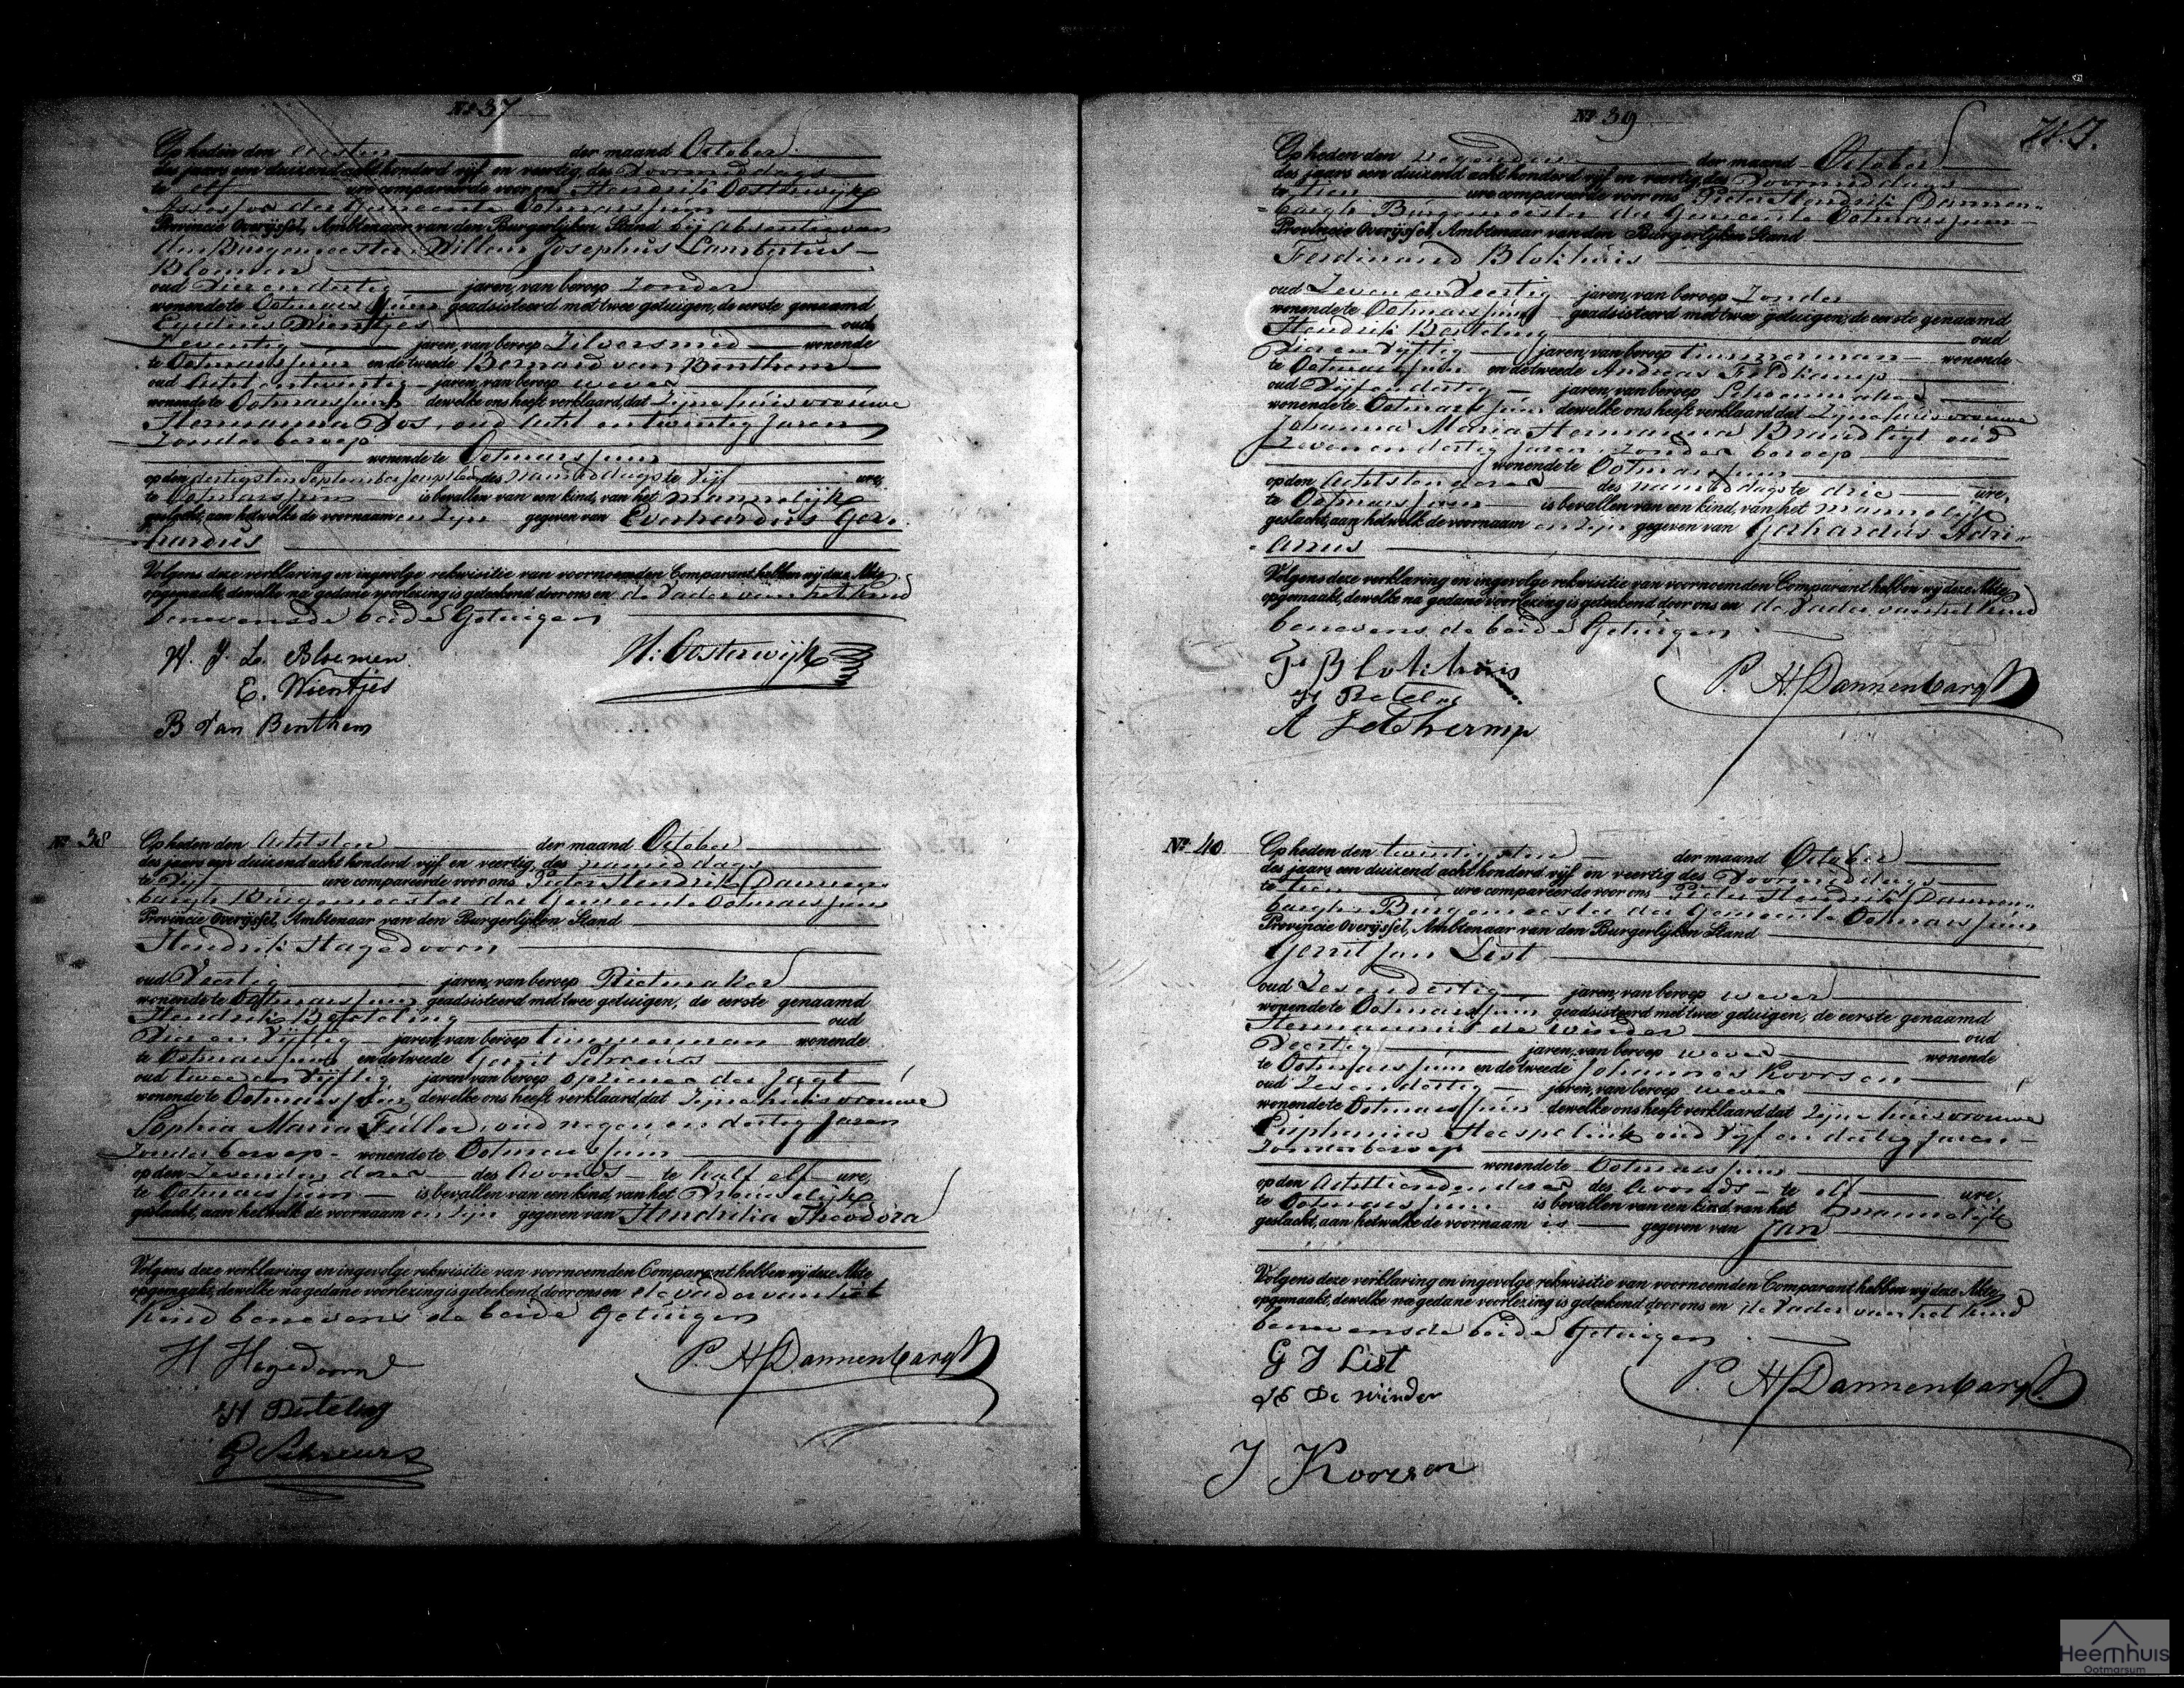 No 37
Op heden den eersten der maand October
des jaars een duizend acht honderd vijf en veertig, des Voormiddags
te elf ure compareerde voor ons Hendrik Oosterwijk
Assessor der Gemeente Ootmarssum
Provincie Overijssel, Ambtenaar van den Burgerlijken Stand bij absentie van
den Burgemeester, Willem Josephus Lambertus
Bloemen
oud Vier en dertig jaren, van beroep Zonder
wonende te Ootmarssum geadsisteerd met twee getuigen, de eerste genaamd
Wientjes oud
Zeventig jaren, van beroep Zilversmid wonende
te Ootmarssum en de tweede Bernard van Benthem
oud Acht en twintig jaren, van beroep wever
wonende te Ootmarssum dewelke ons heeft verklaard, dat Zijne huisvrouwe
Hermanna Vos, oud Acht en twintig Jaren
Zonder beroep
wonende te Ootmarssum
op den dertigsten September des namiddags te Vijf ure,
te Ootmarssum is bevallen van een kind, van het Mannelijk
geslacht, aan hetwelke de voornaam en zijn gegeven van Everhardus Ger-
hardus
Volgens deze verklaring en ingevolge rekwisitie van voornoemden Comparant hebben wij deze Akte
opgemaakt, dewelke na gedane voorlezing is geteekend door ons en de Vader van het kind
benevens de beide Getuigen
W. J. L. Bloemen H. Oosterwijk
E. Wientjes
B Van Benthem
No 38
Op heden den Achtsten der maand October
des jaars een duizend acht honderd vijf en veertig, des namiddags
te Vijf ure compareerde voor ons Pieter Hendrik Dannen-
bargh Burgemeester der Gemeente Ootmarssum
Provincie Overijssel, Ambtenaar van den Burgerlijken Stand
Hendrik Hagedoorn
oud Veertig jaren, van beroep Rietmaker
wonende te Ootmarssum geadsisteerd met twee getuigen, de eerste genaamd
Hendrik Besteling oud
Vier en Vijftig jaren, van beroep timmerman wonende
te Ootmarssum en de tweede Gerrit Schreurs
oud twee en Vijftig jaren van beroep opziener der Jagt
wonende te Ootmarssum dewelke ons heeft verklaard, dat Zijne huisvrouwe
Sophia Maria Füller, oud negen en dertig Jaren
Zonder beroep - wonende te Ootmarssum
op den Zevenden dezer des Avonds te half elf ure,
te Ootmarssum is bevallen van een kind van het Vrouwelijk
geslacht, aan hetwelk de voornaam en zijn gegeven van Hendrikia Theodora
Volgens deze verklaring en ingevolge rekwisitie van voornoemden Comparant hebben wij deze Akte
opgemaakt, dewelke na gedane voorlezing is geteekend door ons en de vader van het
Kind benevens de beide Getuigen
H Hagedoorn P. H. Dannenbargh
G Schreurs
No 39
Op heden den negenden der maand October
des jaars een duizend acht honderd vijf en veertig des Voormiddags
te tien ure compareerde voor ons Pieter Hendrik Dannen-
bargh Burgemeester der Gemeente Ootmarssum
Provincie Overijssel, Ambtenaar van den Burgerlijken Stand
Ferdinand Blokhuis
oud Zeven en Veertig jaren, van beroep Zonder
wonende te Ootmarssum geadsisteerd met twee getuigen, de eerste genaamd
Hendrik Besteling oud
Vier en Vijftig jaren, van beroep timmerman wonende
te Ootmarssum en de tweede Andreas Feldkamp
oud Vijf en dertig jaren, van beroep Schoenmaker
wonende te Ootmarssum dewelke ons heeft verklaard dat Zijne huisvrouwe
Johanna Maria Hermanna Brandligt oud
Zeven en dertig Jaren Zonder beroep
wonende te Ootmarssum
op den Achtsten dezer des namiddags te drie ure,
te Ootmarssum is bevallen van een kind, van het mannelijk
geslacht, aan hetwelk de voornaam en zijn gegeven van Gerhardus Adri-
anus
Volgens deze verklaring en ingevolge rekwisitie van voornoemden Comparant hebben wij deze Akte
opgemaakt, dewelke na gedane voorlezing is geteekend door ons en de Vader van het kind
benevens de beide Getuigen
F Blokhuis P. H. Dannenbargh
No 40
Op heden den twintigsten der maand October
des jaars een duizend acht honderd vijf en veertig des Voormiddags
te tien ure compareerde voor ons Pieter Hendrik Dannen-
bargh Burgemeester der Gemeente Ootmarssum
Provincie Overijssel, Ambtenaar van den Burgerlijken Stand
Gerrit Jan List
oud Zes en dertig jaren, van beroep wever
wonende te Ootmarssum geadsisteerd met twee getuigen, de eerste genaamd
Hermannus de Winder oud
Veertig jaren, van beroep wever wonende
te Ootmarssum en de tweede Johannes Koorsen
oud Zes en dertig jaren, van beroep wever
wonende te Ootmarssum dewelke ons heeft verklaard dat Zijne huisvrouwe
Euphemia Heespelink oud Vijf en dertig Jaren
Zonder beroep
wonende te Ootmarssum
op den Achttienden dezer des Avonds te elf ure,
te Ootmarssum is bevallen van een kind, van het mannelijk
geslacht, aan hetwelke de voornaam is gegeven van Jan
Volgens deze verklaring en ingevolge rekwisitie van voornoemden Comparant hebben wij deze Akte
opgemaakt, dewelke na gedane voorlezing is geteekend door ons en de Vader van het kind
benevens de beide Getuigen
G J List P. H. Dannenbargh
H De Winder
J Koorsen
Heemhuis
Ootmarsum